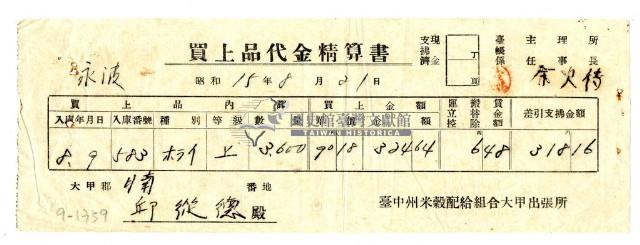 買上品代金精算書
現金支拂濟
丁
頁
臺帳係
主任
理事
所長
永波
昭和 15年 8月 21日
買上品內譯 買上金額 匯立替 搬賃控除金額 差引支拂金額
入庫年月日 入庫番號 種別 等級 數量 單價 金額
8.9 583 ホライ 上 3.600 9018 32464 648 31816
大甲郡 番地
邱 縱 德 殿
臺中州米穀配給組合大甲出張所
9-1359
國史館臺灣文獻館
TAIWAN HISTORICA